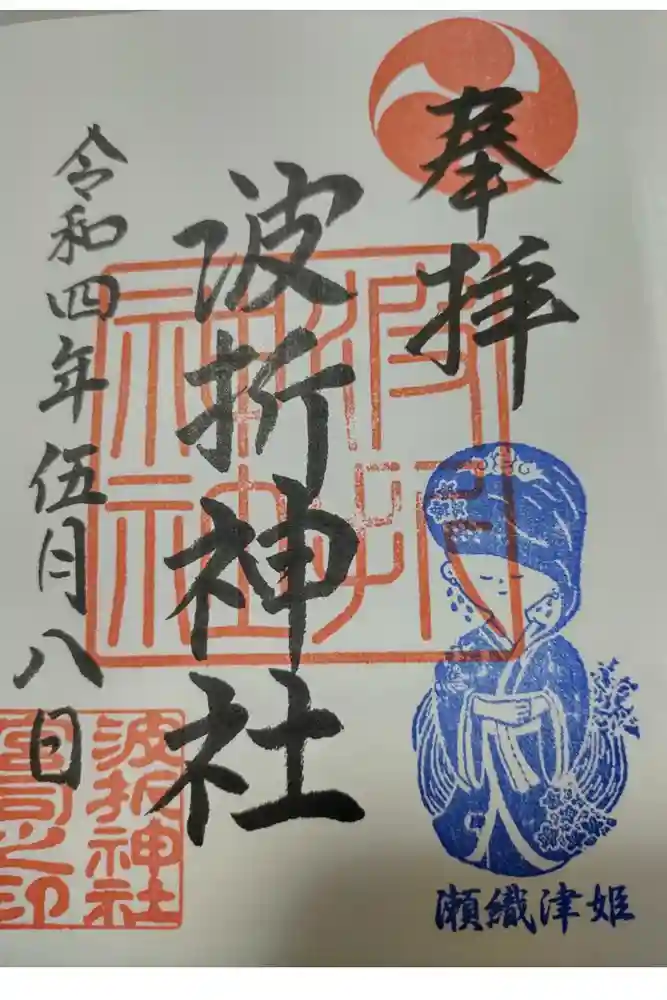 奉拝
波折神社
令和四年伍月八日
波折
神社
波折神社
宮司之印
瀬織津姫